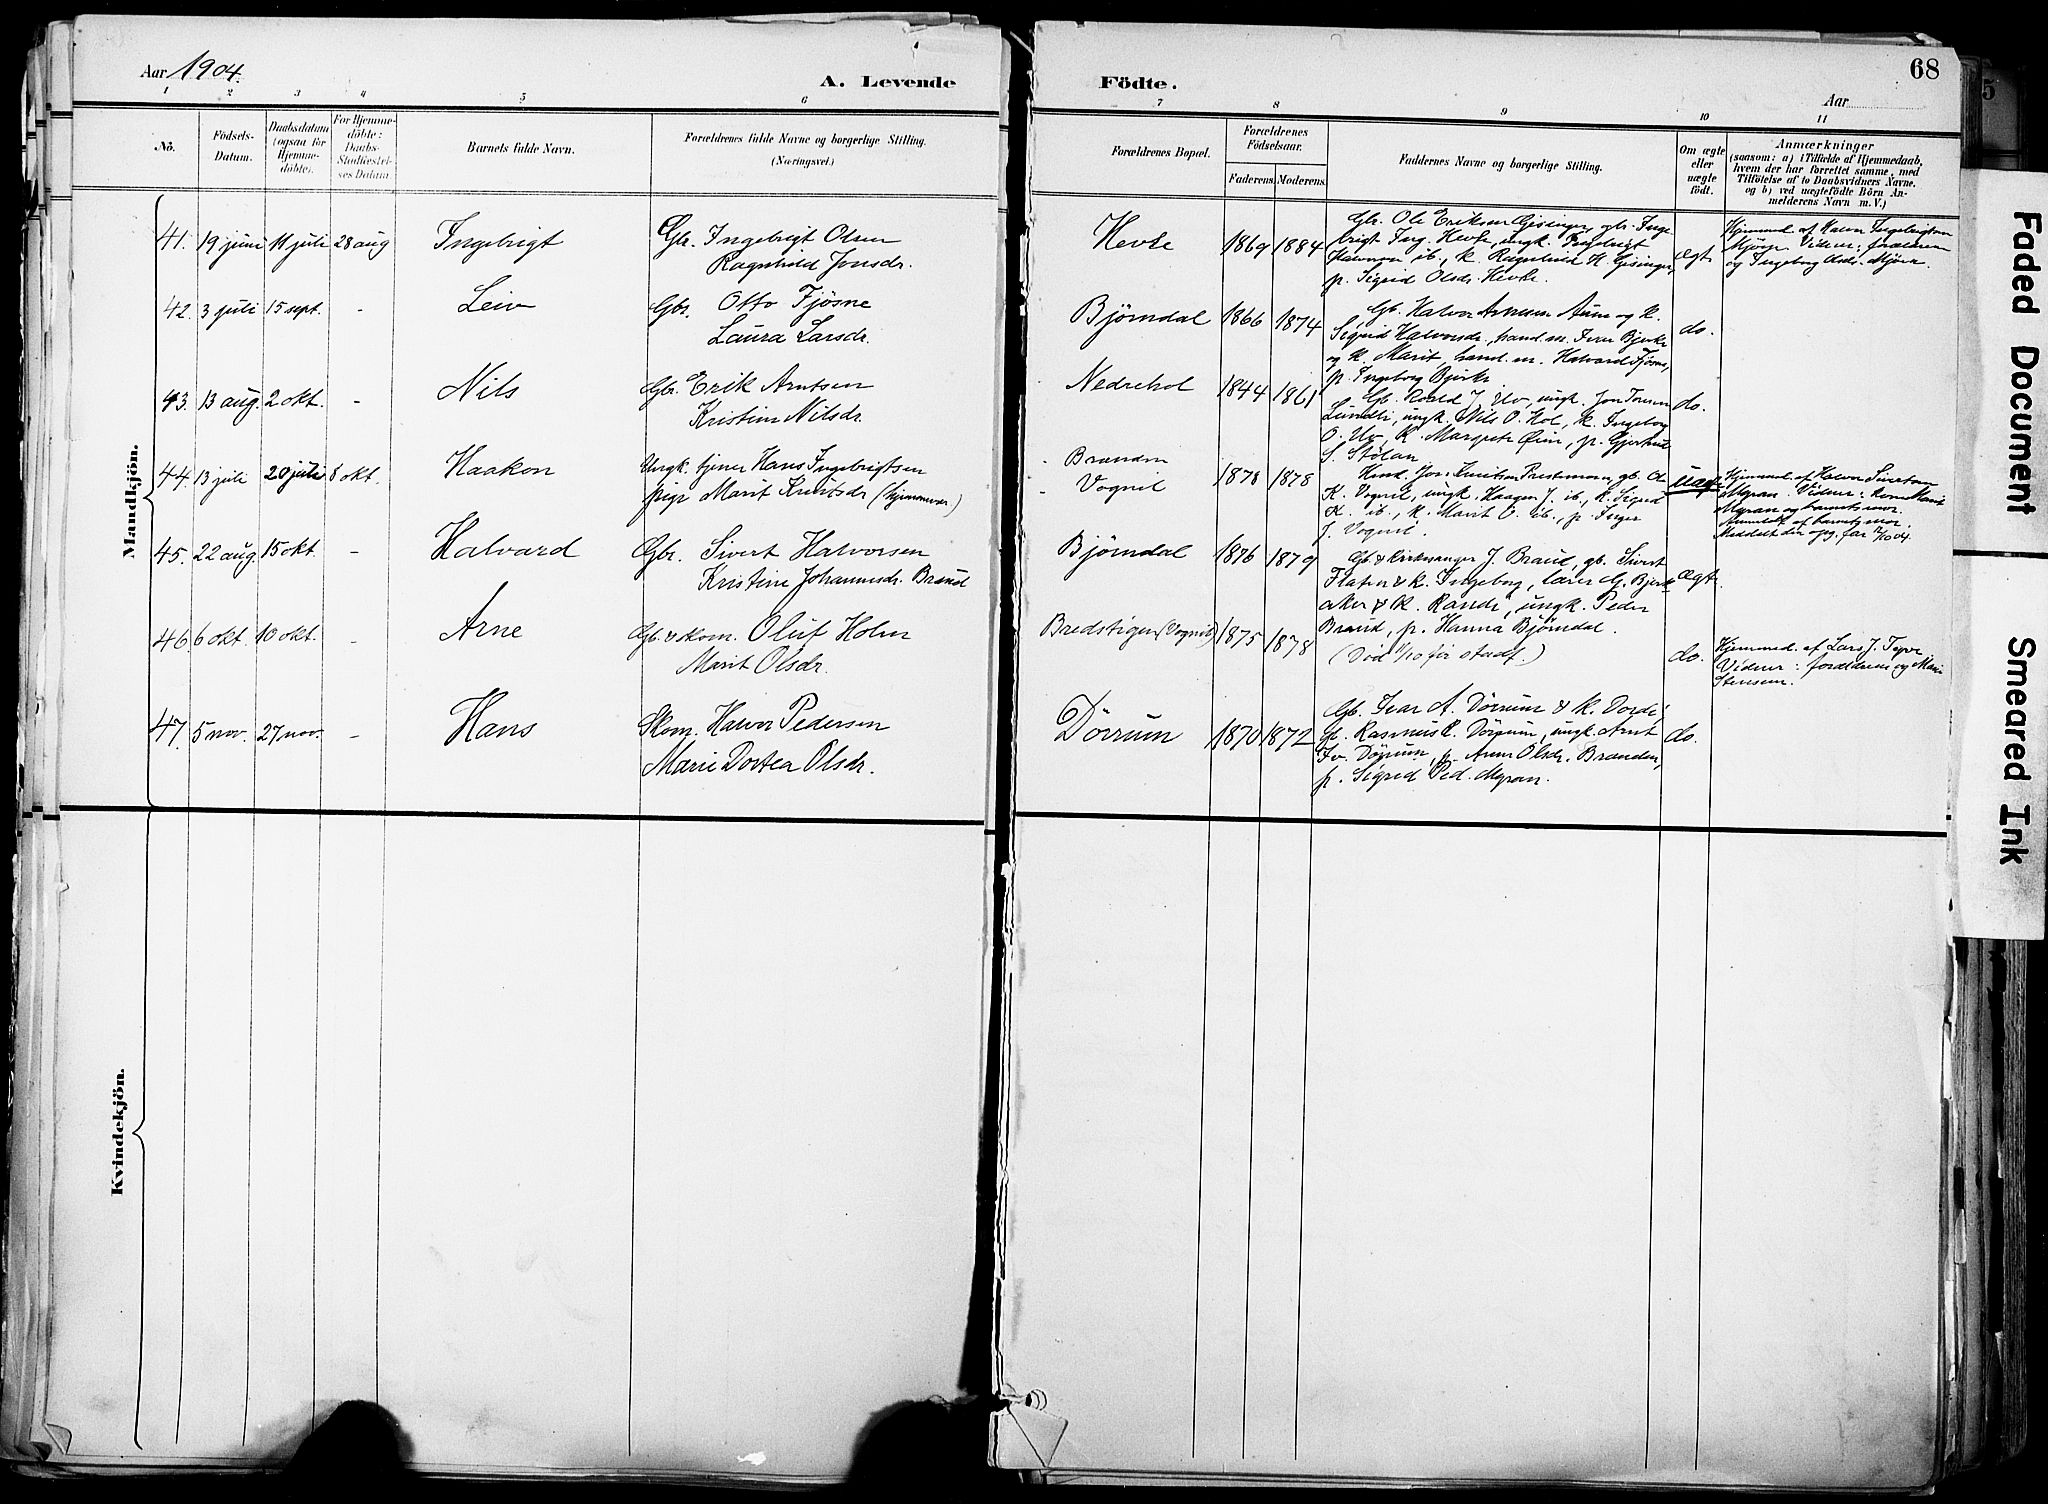 Aar 1904.
A. Levende
Födte.
68
Aar
1 2 3 4 5 6 7 8 9 10 11
Nô.
Födsels-
Datum.
Daabsdatum
(ogsaa for
Hjemme-
döbte).
For Hjemme-
döbte:
Daabs-
Stadfæstel-
ses Datum.
Barnets fulde Navn.
Forældrenes fulde Navne og borgerlige Stilling.
(Næringsvei.)
Forældrenes Bopæl.
Forældrenes
Födselsaar.
Faderens. Moderens.
Faddernes Navne og borgerlige Stilling.
Om ægte
eller
uægte
födt.
Anmærkninger
(saasom: a) i Tilfælde af Hjemmedaab,
hvem der har forrettet samme, med
Tilföielse af to Daabsvidners Navne.
og b) ved uægtefödte Börn An-
melderens Navn m. V.)
Mandkjön.
41. 19 juni 11 juli 28 aug Ingebrigt Gbr. Ingebrigt Olsen
Ragnhild Jonsdr.
Hevle 1869 1884
Gbr. Ole Eriksen Gisinger, gbr. Inge-
brigt Ing. Hevle, ungk. Ingebrigt
ib., k. Ragnhild H. Gisinger,
p. Sigrid Olsdr. Hevle.
ægt.
Hjemmed. af Halvor Ingebrigtsen
Mjöen. Vidner: forældrene
og Ingeborg Olsdr. Mjöen.
42. 3 juli 15 sept. - Leiv Gbr. Otto Fjösne
Laura Larsdr.
Björndal 1866 1874
Gb. Halvor Arntsen Aune og k.
Sigrid Halvorsdr., hand.m. Iver Bjerke
og k. Marit, hand.m. Halvard Fjösne,
p. Ingeborg Bjerke
do.
43. 13 aug. 2 okt. - Nils Gbr. Erik Arntsen
Kristine Nilsdr.
Nedrehol 1844 1861
Gb. Roald J. Uv, ungk. Jon Jonsen
Lundli, ungk. Nils O. Hol, k. Ingeborg
O. Uv, k. Margrete Öien, p. Gjertrud
S. Stölan
do.
44. 13 juli 20 juli 8 okt. Haakon Ungk. tjener Hans Ingebrigtsen
pige Marit Knutsdr. (hjemmevær)
- Brænden
- Vognil
1878 1878
Hmd. Jon Knutsen Prestmoen, gb. Ole
K. Vognil, ungk. Haagen J. ib., k. Sigrid
K. ib., k. Marit O. ib., p. Inger
J. Vognil.
uægt.
Hjemmed. af Halvor Sivertsen
Myran. Vidner: Kone Marit
Myran og barnets mor.
Anmeldt af barnets mor.
Meddelt den opg. far 12/10 04.
45. 22 aug. 15 okt. - Halvard Gbr. Sivert Halvorsen
Kristine Johannesdr. Brænd
Björndal 1876 1879
Gb. & Kirkesanger J. Brænd, gb. Sivert
Flatner & k. Ingeborg, lærer G. Bjerk-
aker & k. Randi, ungk. Peder
Brænd, p. Hanna Björndal.
ægt.
46. 6 okt. 10 okt. - Arne Gb. & skom. Oluf Holm
Marit Olsdr.
Bredstigen (Vognil) 1875 1878
(Död 11/10 för stadf.)
do.
Hjemmed. af Lars J. Tyve
Vidner: forældrene og Marie
Stensem.
47. 5 nov. 27 nov. - Hans Skom. Halvor Pedersen
Marie Dortea Olsdr.
Dörrum 1870 1872
Gb. Ivar A. Dörrum & k. Dordi,
gb. Rasmus R. Dörrum, ungk. Arnt
Iv. Dörrum, p. Anne Olsdr. Brænden,
p. Sigrid Ped. Myran.
do.
Kvindekjön.
Faded Document
Smeared Ink